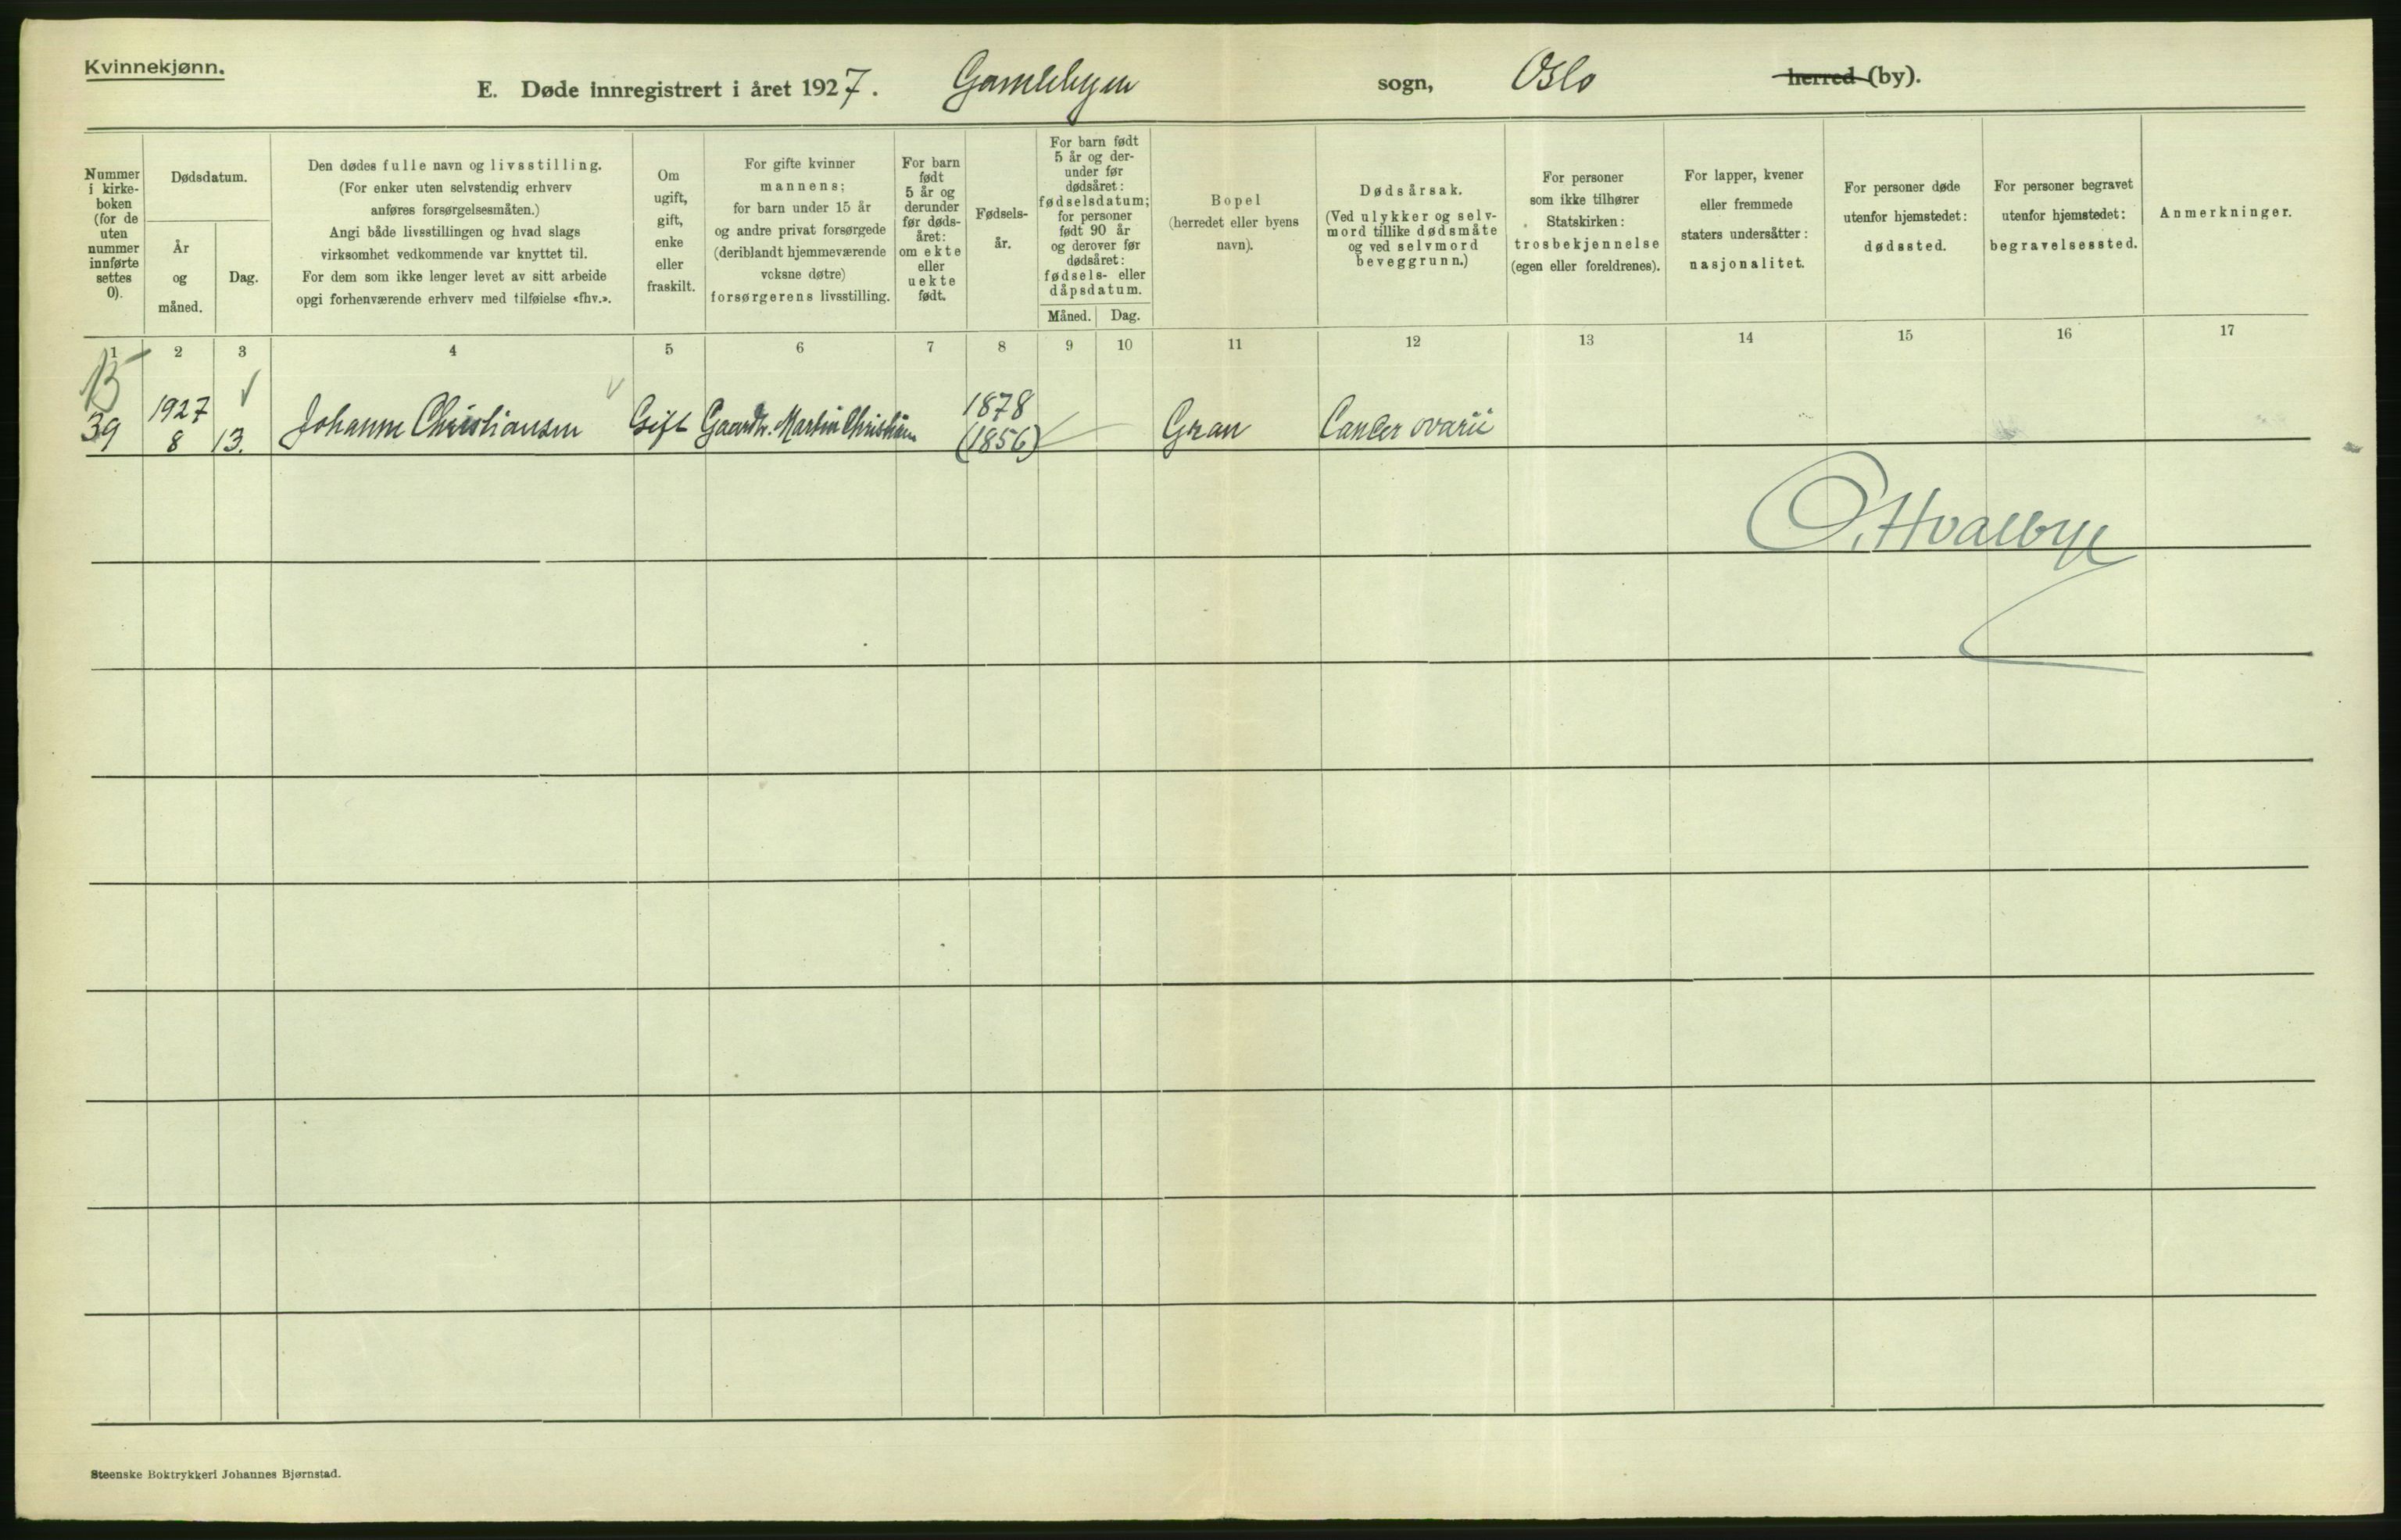 Kvinnekjønn.
E. Døde innregistrert i året 1927. Gamlebyen sogn, Oslo herred (by).
Nummer i kirke-boken (for de uten nummer innførte settes 0).
Dødsdatum.
År og måned.
Dag.
Den dødes fulle navn og livsstilling.
(For enker uten selvstendig erhverv
anføres forsørgelsesmåten.)
Angi både livsstillingen og hvad slags
virksomhet vedkommende var knyttet til.
For dem som ikke lenger levet av sitt arbeide
opgi forhenværende erhverv med tilføielse «fhv.».
Om
ugift,
gift,
enke
eller
fraskilt.
For gifte kvinner
mannens;
for barn under 15 år
og andre privat forsørgede
(deriblandt hjemmeværende
voksne døtre)
forsørgerens livsstilling.
For barn
født
5 år og
derunder
før døds-
året:
om ekte
eller
uekte
født.
Fødsels-
år.
For barn født
5 år og der-
under før
dødsåret:
fødselsdatum;
for personer
født 90 år
og derover før
dødsåret:
fødsels- eller
dåpsdatum.
Måned.
Dag.
Bopel
(herredet eller byens
navn).
Dødsårsak.
(Ved ulykker og selv-
mord tillike dødsmåte
og ved selvmord
beveggrunn.)
For personer
som ikke tilhører
Statskirken:
trosbekjennelse
(egen eller foreldrenes).
For lapper, kvener
eller fremmede
staters undersåtter:
nasjonalitet.
For personer døde
utenfor hjemstedet:
dødssted.
For personer begravet
utenfor hjemstedet:
begravelsessted.
Anmerkninger.
1 2 3 4 5 6 7 8 9 10 11 12 13 14 15 16 17
1927 1878
39 8 13. Johanne Christiansen Gift Gaardbr. Martin Christians (1856) Gran Cancer ovarii
O. Hvalbye
Steenske Boktrykkeri Johannes Bjørnstad.